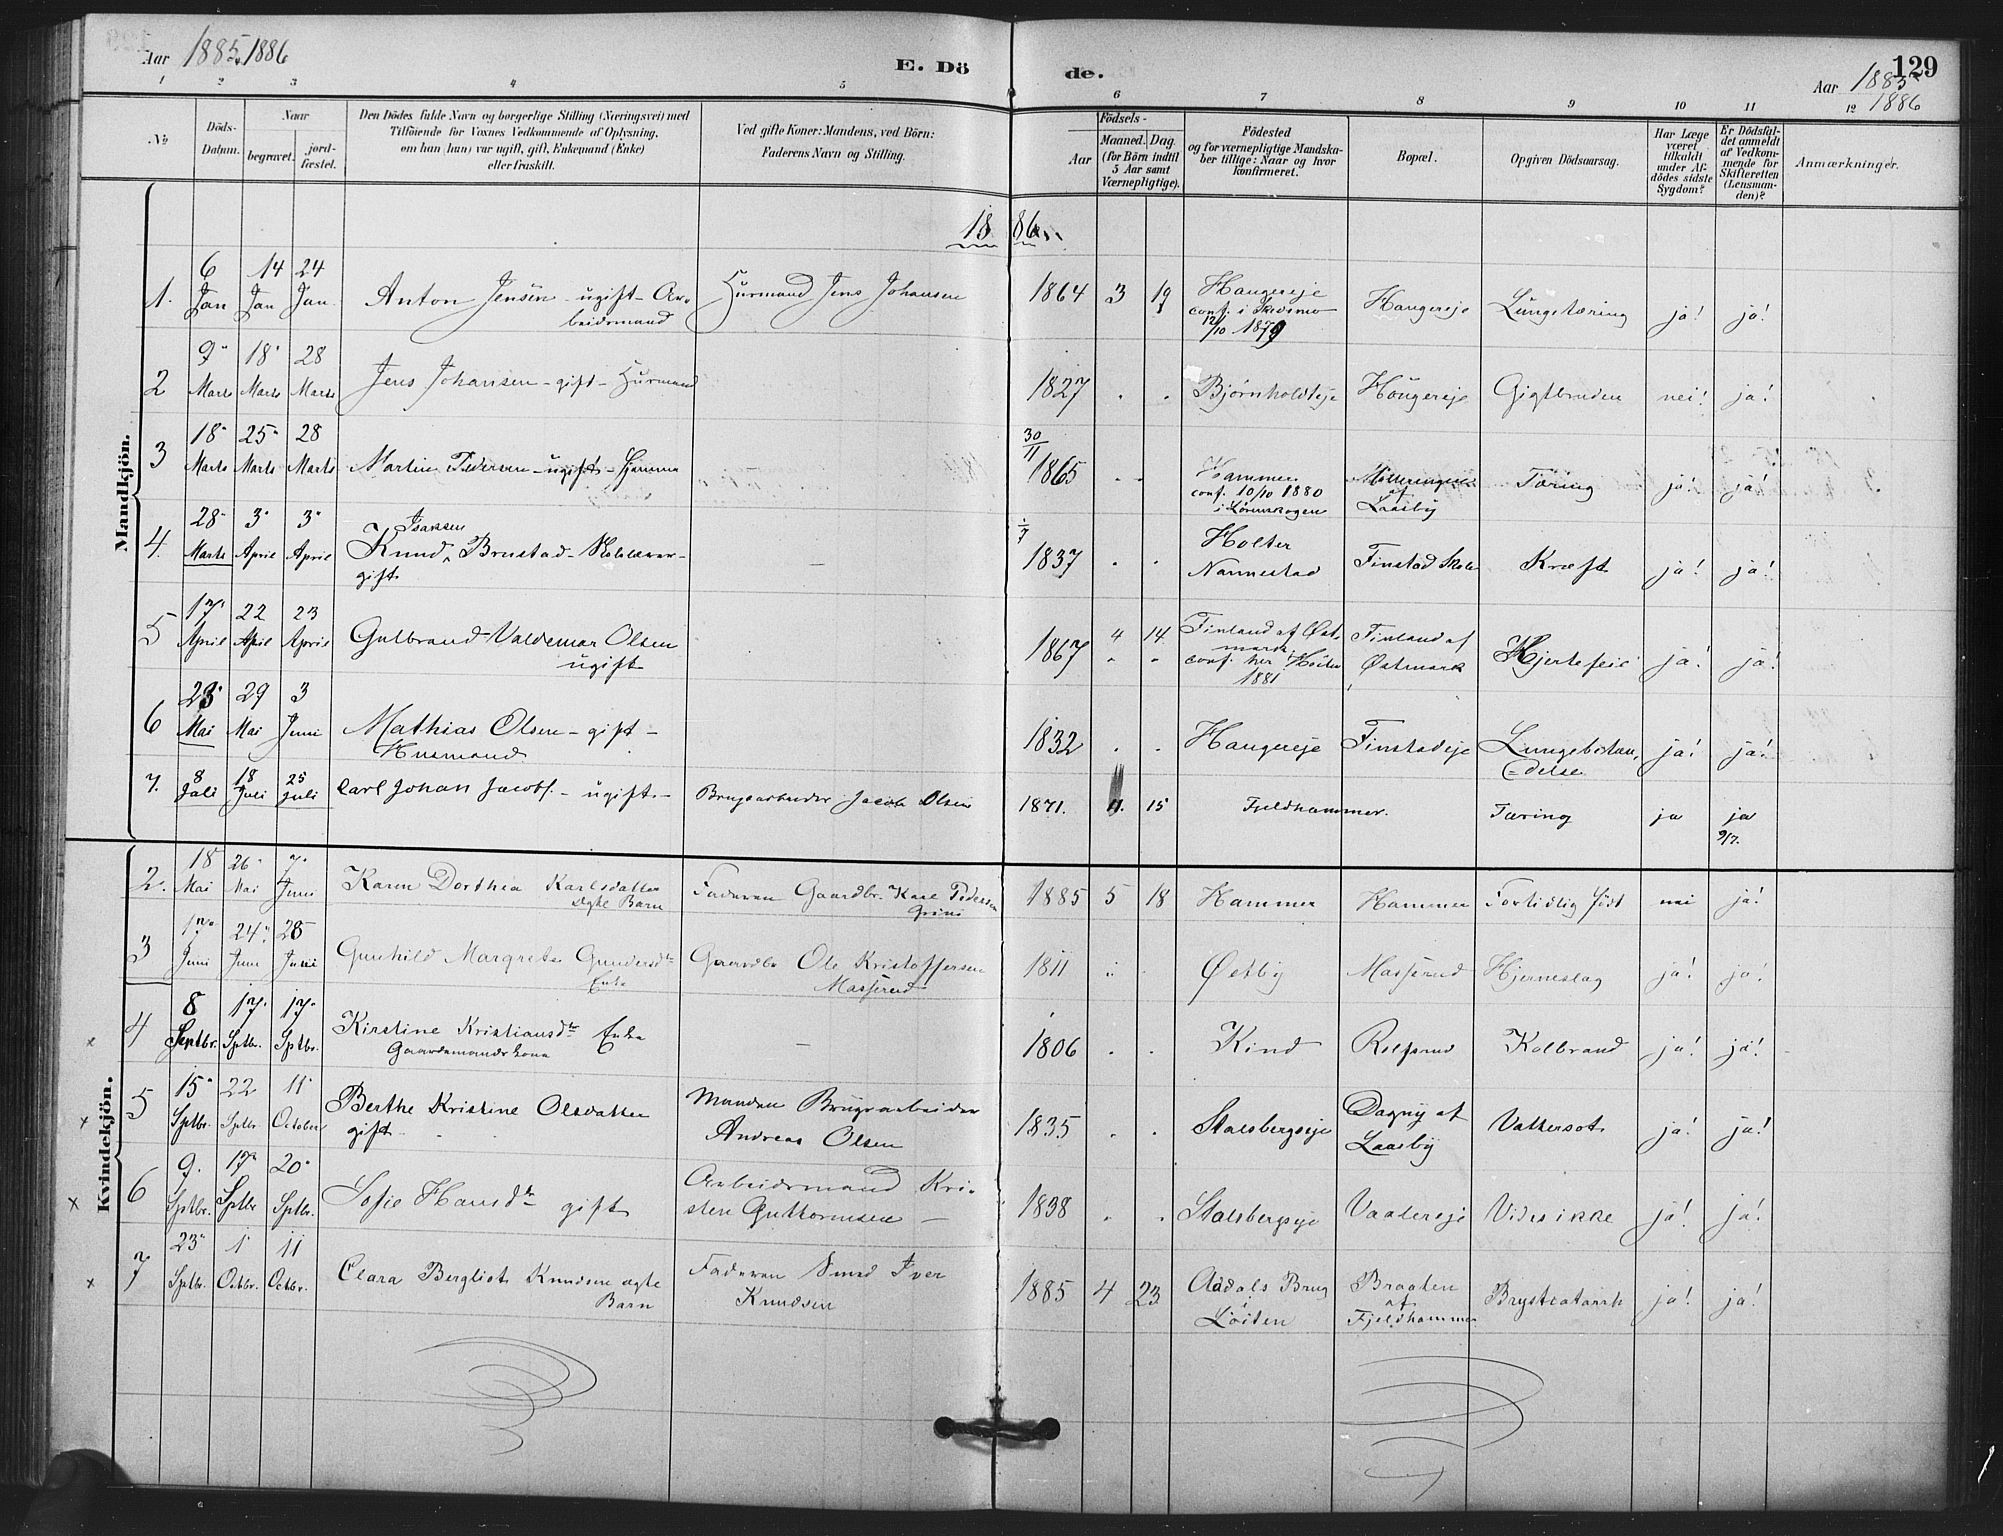 Aar 1885, 1886
E. Dö de.
129
Aar 1885
1886
1 2 3 4 5 6 7 8 9 10 11 12
No
Döds-Datum.
Naar
begravet.
jordfæstet.
Den Dödes fulde Navn og borgerlige Stilling (Næringsvei) med
Tilföiende for Voxnes Vedkommende af Oplysning,
om han (hun) var ugift, gift, Enkemand (Enke)
eller fraskilt.
Ved gifte Koner: Mandens, ved Börn:
Faderens Navn og Stilling.
Födsels-
Aar
Maaned. Dag.
(for Börn indtil
5 Aar samt
Værnepligtige).
Födested
og for værnepligtige Mandska-
ber tillige: Naar og hvor
konfirmeret.
Bopæl.
Opgiven Dödsaarsag.
Har Læge
været
tilkaldt
under Af-
dödes sidste
Sygdom?
Er Dödsfal-
det anmeldt
af Vedkom-
mende for
Skifteretten
(Lensman-
den)?
Anmærkninger.
Mandkjön.
18 86
1. 6 Jan 14 Jan 24 Jan. Anton Jensen - ugift - Ar-
beidsmand
Husmand Jens Johansen 1864 3 19 Haugereje
conf. i Skedsmo
12/10 1879
Haugereje Lungetæring ja! ja!
2 9 Marts 18 Marts 28 Marts Jens Johansen - gift - Husmand 1827 Bjørnholdteje Haugereje Gigtbruden nei! ja!
3 18 Marts 25 Marts 28 Marts Martin Pedersen - ugift - hjemme 30/11 1865 Hammer
conf. 10/10 1880
i Lørenskogen
af
Laasby
Tæring ja! ja!
4. 28 Marts 3 April 3 April Isaksen
Knud Brustad - Skolelærer -
gift
- 1/7 1837 Holter
Nannestad
Finstad Skole Kræft ja! ja!
5 17 April 22 April 23 April Gulbrand Valdemar Olsen
ugift
1867 4 14 Finland af Øst-
mark
conf. her Høsten
1881
Finland af
Østmark
Hjertefeil ja! ja!
6 28 Mai 29 Mai 3 Juni Mathias Olsen - gift -
Husmand
1832 Haugereje Finstadeje Lungebetæn-
delse
ja! ja!
7. 8 Juli 18 Juli 25 Juli Carl Johan Jacobs. - ugift - Brugsarbeider Jacob Olsen 1871. 11. 15 Fjeldhammer. Tæring ja ja
9/7.
Kvindekjön.
2. 18 Mai 26 Mai 7 Juni Karen Dorthea Karlsdatter
ægte Barn
Faderen Gaardbr. Karl Pedersen
1885 5 18 Hammer Hammer Fortidlig født nei ja!
3 17 Juni 24 Juni 28 Gunhild Margrete Gundersdtr
Enke
Gaardbr Ole Kristoffersen
Masserud
1811 Østby Masserud Hjerneslag ja! ja!
x 4 8 Septbr. 17 Sptbr. 17 Sptbr. Kirstine Kristiansdtr Enke
Gaardmandskone
- 1806 Kind Rolfsrud Kolbrand ja! ja!
x 5 15 Sptbr. 22 Sptbr 11 October Berthe Kristine Olsdatter
gift -
Manden Brugsarbeider
Andreas Olsen
1835 Stalsbergseje Dagny af
Laasby
Vattersot ja! ja!
x 6 9. Sptbr. 17 Sptbr 20 Sptbr. Sofie Hansdtr gift Arbeidsmand Kri-
sten Guttormsen -
1838 Stalsbergseje Vaalereje Vides ikke ja! ja!
x 7 23 Sptbr. 1 Octbr. 11 Octbr. Clara Bergliot Knudsen ægte
Barn
Faderen Smed Iver
Knudsen
1885 4 23 Aadals Brug
i
Løiten
Braaten
af
Fjeldhammer
Brystcatarrh ja! ja!